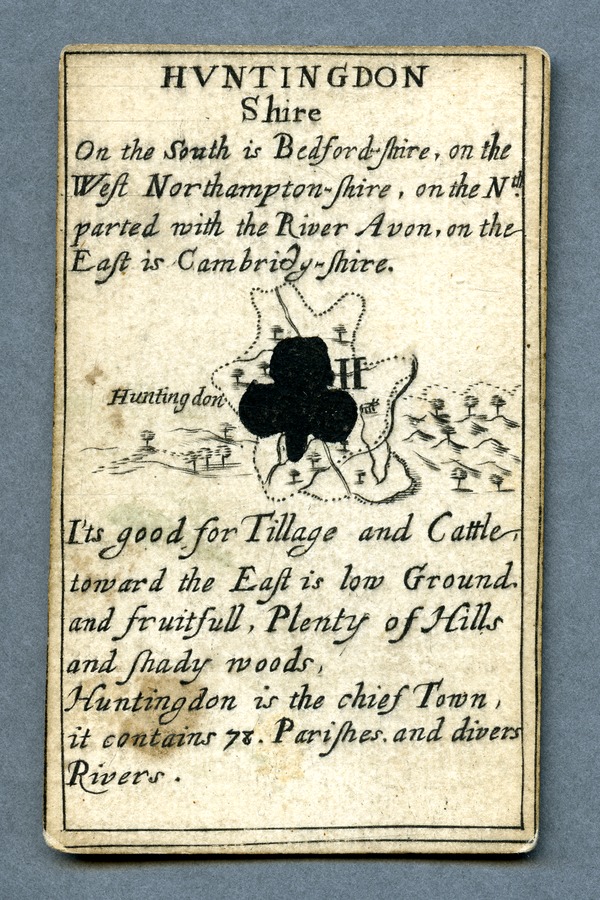 HVNTINGDON
Shire
On the South is Bedford-shire, on the
West Northampton-shire, on the Nth.
parted with the River Avon, on the
East is Cambridg-shire.
H
Huntingdon
I'ts good for Tillage and Cattle,
toward the East is low Ground
and fruitfull, Plenty of Hills
and shady woods,
Huntingdon is the chief Town,
it contains 78. Parishes. and divers
Rivers.